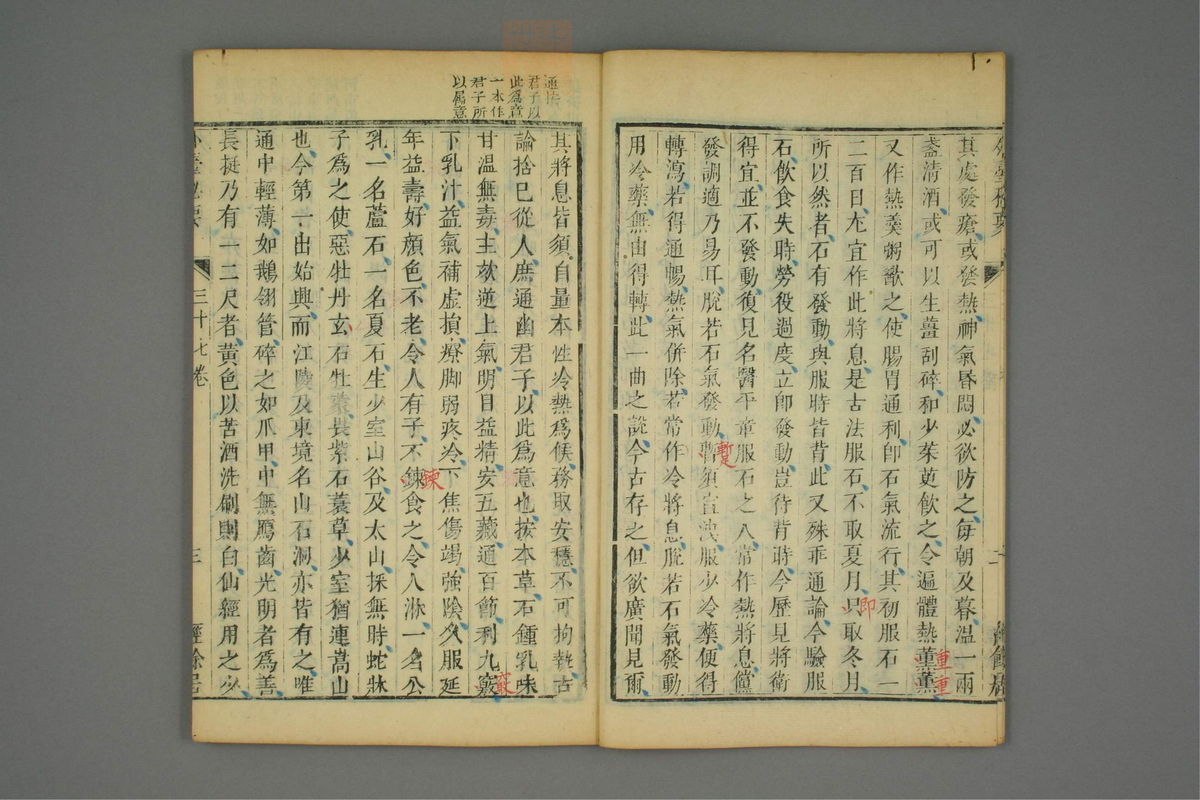 外臺秘要
二
經餘居
其處發瘡或發熱神氣昏悶必欲防之每朝及暮温一兩
盞清酒或可以生薑刮碎和少茱萸飲之令遍體熱薰薰
又作熱羮粥歠之使腸胃通利即石氣流行其初服石一
二百日尤宜作此將息是古法服石不取夏月只取冬月
所以然者石有發動與服時皆背此又殊乖通論今驗服
石飲食失時勞役過度立即發動豈待背時今歷見將衛
得宜並不發動復見名醫平章服石之人常作熱將息儻
發調適乃易耳脫若石氣發動暫須宣洩服少冷藥便得
轉瀉若得通暢熱氣併除若常作冷將息脫若石氣發動
用冷藥無由得轉此一曲之說今古存之但欲廣聞見爾
重重
即
暫
通恠
君子以
此爲意
一本作
君子所
以屬意
其將息皆須自量本性冷熱爲候務取安穩不可拘執古
論捨已從人庶通幽君子以此爲意也按本草石鍾乳味
甘温無毒主欬逆上氣明目益精安五藏通百節利九竅
下乳汁益氣補虛損療脚弱疼冷下焦傷竭強陰久服延
年益壽好顔色不老令人有子不鍊食之令人淋一名公
乳一名蘆石一名夏石生少室山谷及太山採無時蛇牀
子爲之使惡牡丹玄石牡蒙畏紫石蘘草少室猶連嵩山
也今第一出始興而江陵及東境名山石洞亦皆有之唯
通中輕薄如鵝翎管碎之如爪甲中無鴈齒光明者爲善
長挺乃有一二尺者黃色以苦酒洗刷則白仙經用之少
竅
鍊
外臺秘要
三十七卷
三
經餘居